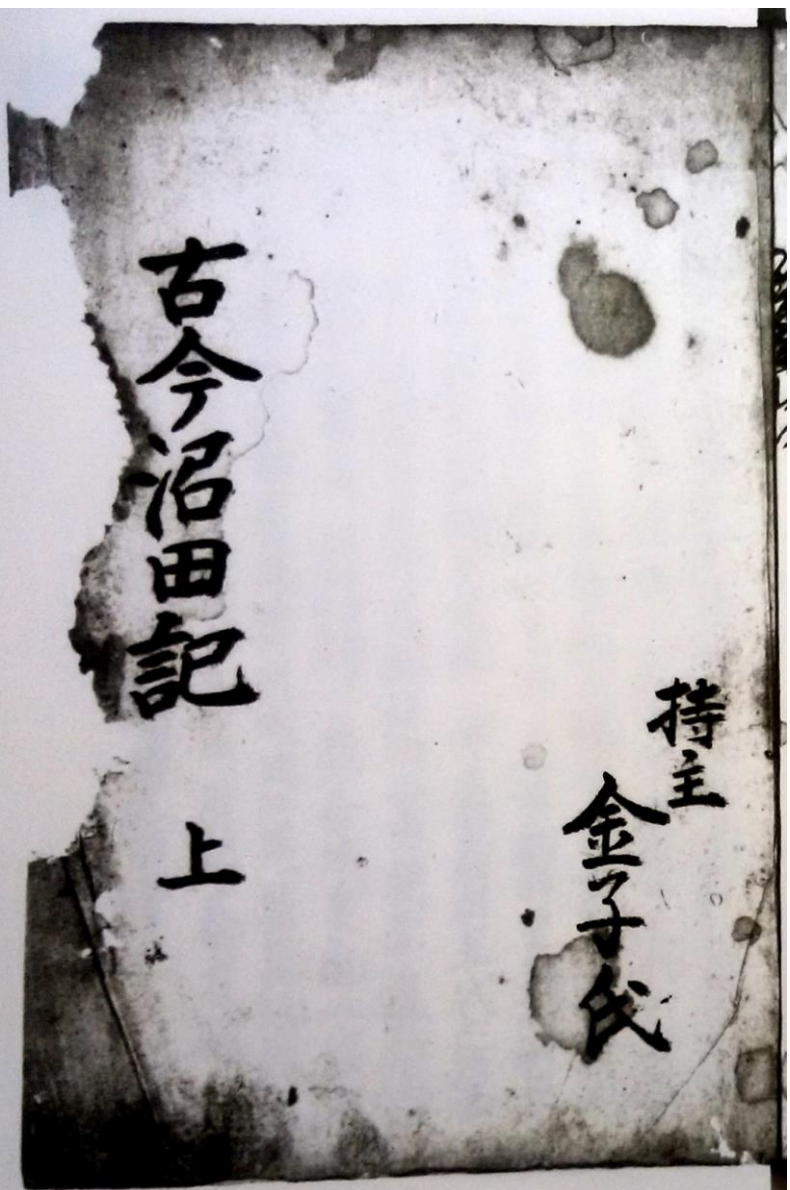 持主
金子氏
古今沼田記 上